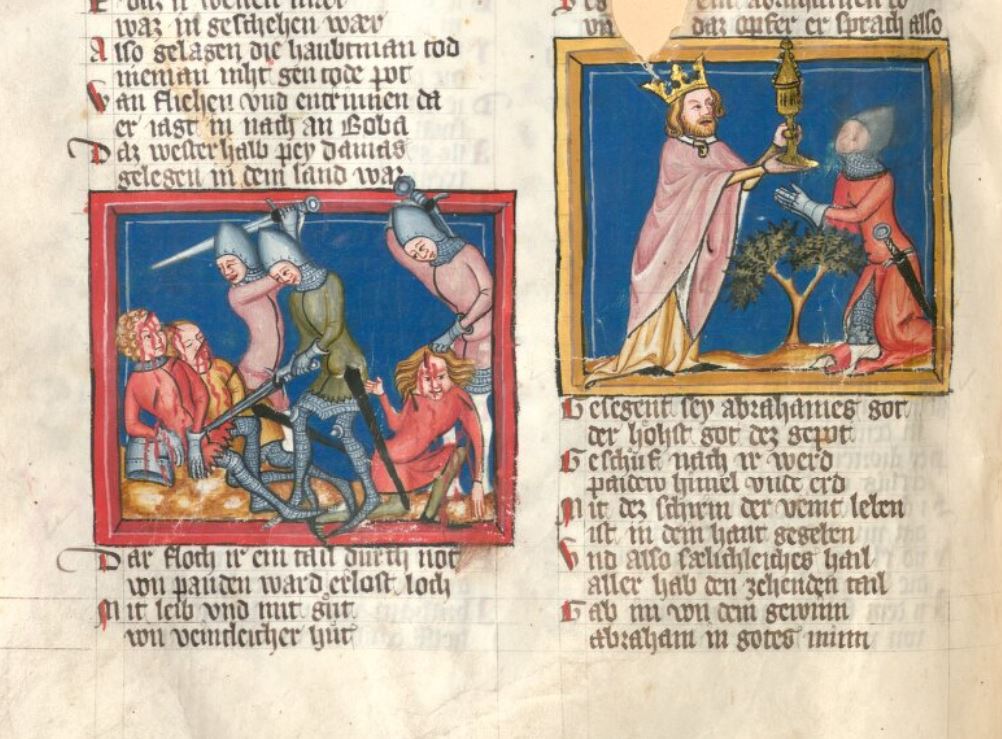 waz in geschehen wær
Also gelagen die haubtman tod
nieman niht gen tode pot
Van fliehen vnd entrinnen da
er iagt in nach an Goba
Daz westerhalb pey damas
gelegen in dem land waz
Dar floch ir ein tail durch not
von panden ward erlost loth
Mit leib vnd mit gůt
von veintleicher hůt
daz opfer er sprach also
Gesegent sey abrahames got
der hohst got dez gepot
Geschuf nach ir werd
paidew himel vnde erd
Mit dez schirm der veint leben
ist in dein hant gegeben
Vnd also sælichleiches hail
aller hab den zehenden tail
Gab im von dem gewinn
abraham in gotes minn